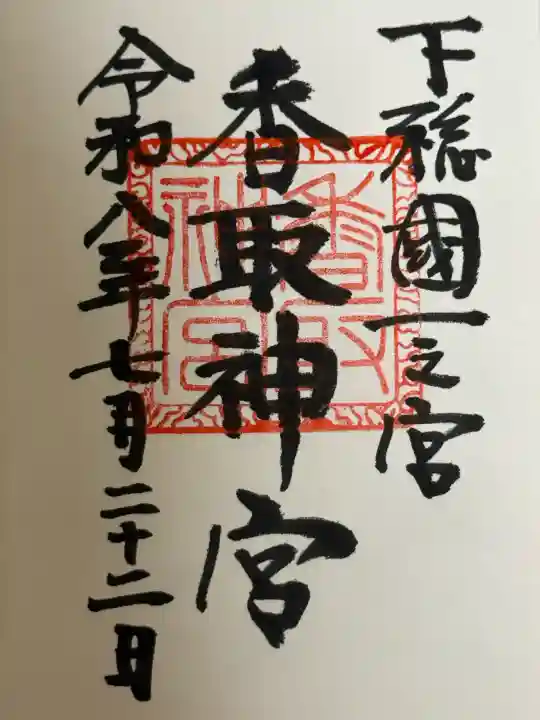 下総國一之宮
香取神宮
令和八年七月二十二日
香取神宮